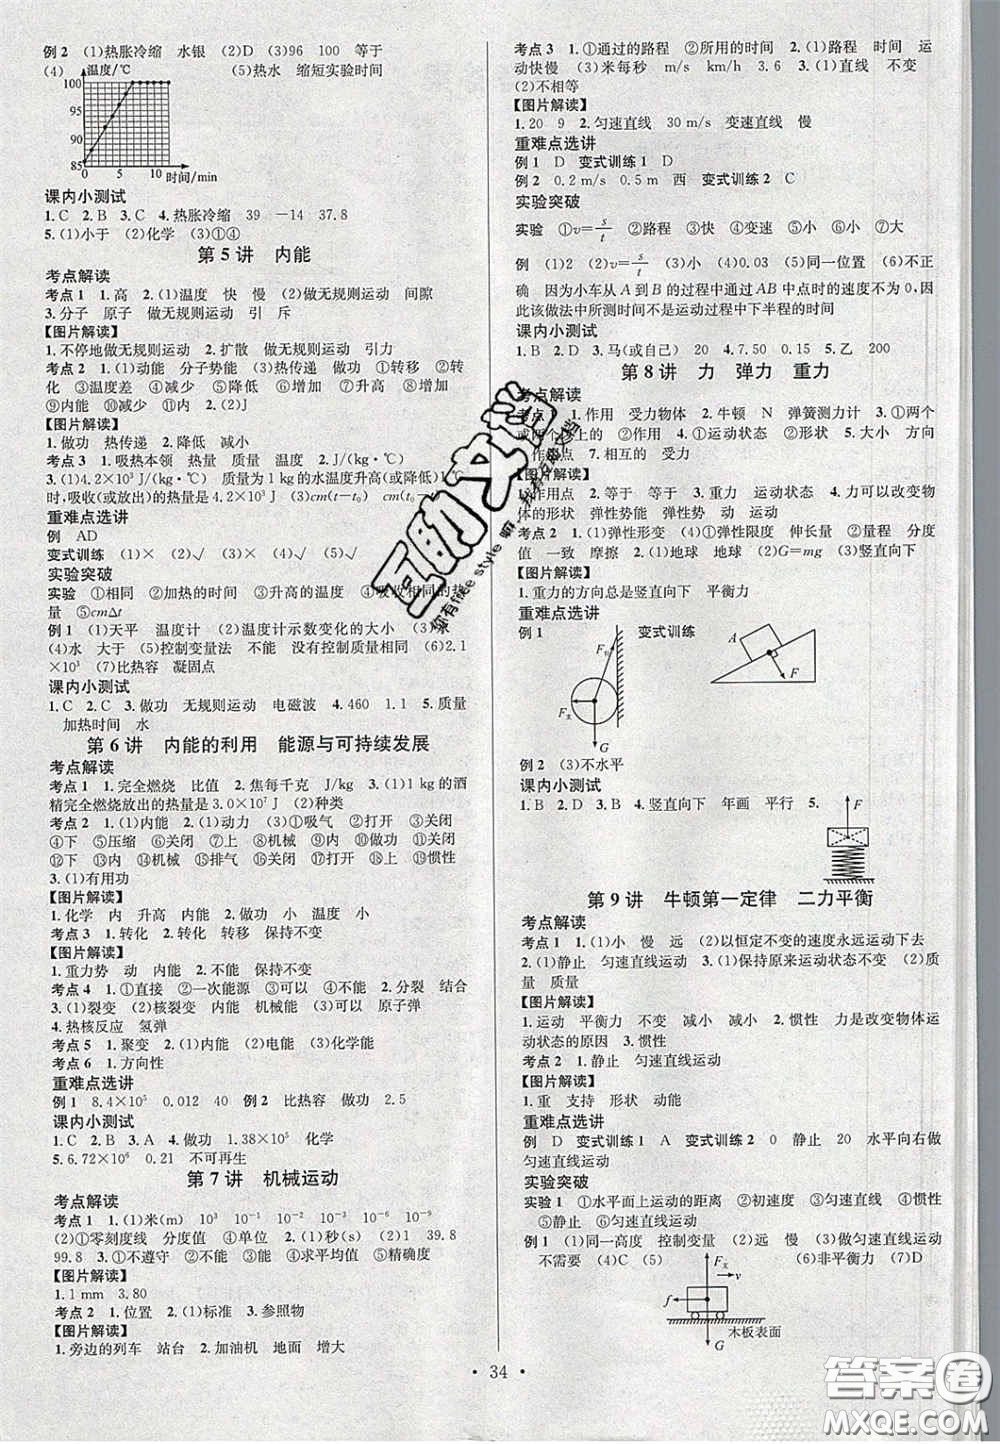 例2 (1)热胀冷缩 水银 (2)D (3)96 100 等于
(4) 温度/℃ (5)热水 缩短实验时间
100
95
90
85
0 5 10 时间/min
课内小测试
1.C 2.B 3.C 4.热胀冷缩 39 -14 37.8
5.(1)小于 (2)化学 (3)①④
第5讲 内能
考点解读
考点1 1.高 2.(1)温度 快 慢 (2)做无规则运动 间隙
3.分子 原子 做无规则运动 引 斥
【图片解读】
1.不停地做无规则运动 2.扩散 做无规则运动 引力
考点2 1.(1)动能 分子势能 (3)升高 (4)①转移 ②转化
③温度差 ④减少 ⑤降低 ⑥增加 ⑦升高 ⑧增加
⑨内能 ⑩减少 ⑪内 2.(1)转移
【图片解读】
1.做功 热传递 2.降低 减小
考点3 1.吸热本领 热量 质量 温度 2.J/(kg·℃)
3.(1)4.2×10³ J/(kg·℃) 质量为1 kg的水温度升高(或降低)1℃
时,吸收(或放出)的热量是4.2×10³ J (3)cm(t-t₀) cm(t₀-t)
重难点选讲
例 AD
变式训练 (1)× (2)√ (3)× (4)√ (5)√ (6)×
实验突破
实验 ①相同 ②加热的时间 ③升高的温度 ④吸收相同的热
量 ⑤cmΔt
例1 (1)天平 温度计 (2)温度计示数变化的大小 (3)水
(4)水 大于 (5)控制变量法 不能 没有控制质量相同 (6)2.1
×10³ (7)比热容 凝固点
课内小测试
1.C 2.C 3.做功 无规则运动 电磁波 4.460 1.1 5.质量
加热时间 水
第6讲 内能的利用 能源与可持续发展
考点解读
考点1 1.完全燃烧 比值 2.焦每千克 J/kg 3.(1)1 kg的酒
精完全燃烧放出的热量是3.0×10⁷ J (2)种类
考点2 1.(1)内能 2.(1)动力 (3)①吸气 ②打开 ③关闭
④下 ⑤压缩 ⑥关闭 ⑦上 ⑧机械 ⑨内 ⑩做功 ⑪关闭
⑫下 ⑬内 ⑭机械 ⑮排气 ⑯关闭 ⑰打开 ⑱上 ⑲惯性
3.(1)有用功
【图片解读】
1.化学 内 升高 内能 2.做功 小 温度 小
考点3 1.转化 2.转化 转移 保持不变
【图片解读】
1.重力势 动 内能 2.不能 保持不变
考点4 1.①直接 ②一次能源 ③可以 ④不能 2.分裂 结合
3.(1)裂变 (2)核裂变 内能 机械能 (3)可以 原子弹
4.热核反应 氢弹
考点5 1.聚变 2.(1)内能 (2)电能 (3)化学能
考点6 1.方向性
重难点选讲
例1 8.4×10⁵ 0.012 40 例2 比热容 做功 2.5
课内小测试
1.C 2.B 3.A 4.做功 1.38×10⁵ 化学
5.6.72×10⁶ 0.21 不可再生
第7讲 机械运动
考点解读
考点1 1.(1)米(m) 10³ 10⁻¹ 10⁻² 10⁻³ 10⁻⁶ 10⁻⁹
(2)①零刻度线 分度值 ④单位 2.(1)秒(s) (2)1 39.8
99.8 3.①不遵守 ②不能 ④求平均值 ⑤精确度
【图片解读】
1.1 mm 3.80
考点2 1.位置 2.(1)标准 3.参照物
【图片解读】
1.旁边的列车 站台 2.加油机 地面 增大
考点3 1.①通过的路程 ②所用的时间 2.(1)路程 时间 运
动快慢 (3)米每秒 m/s km/h 3.6 3.(1)直线 不变
(2)不相等
【图片解读】
1.20 9 2.匀速直线 30 m/s 变速直线 慢
重难点选讲
例1 D 变式训练1 D
例2 0.2 m/s 0.5 m 西 变式训练2 C
实验突破
实验 ①v=s/t ②路程 ③快 ④变速 ⑤速度 ⑥小 ⑦大
例 (1)2 (2)v=s/t (3)小 (4)0.03 (5)同一位置 (6)不正
确 因为小车从A到B的过程中通过AB中点时的速度不为0,因
此该做法中所测时间不是运动过程中下半程的时间
课内小测试
1.B 2.D 3.马(或自己) 20 4.7.50 0.15 5.乙 200
第8讲 力 弹力 重力
考点解读
考点1 1.作用 受力物体 2.牛顿 N 弹簧测力计 3.①两个
或两个以上的 ②作用 4.①运动状态 ②形状 5.大小 方向
作用点 7.相互的 受力
【图片解读】
1.作用点 2.等于 等于 3.重力 运动状态 4.力可以改变物
体的形状 弹性势能 弹性势 动 运动
考点2 1.(1)弹性形变 (4)①弹性限度 伸长量 ②量程 分度
值 一致 摩擦 2.(1)地球 地球 (2)G=mg (3)竖直向下
【图片解读】
1.重力的方向总是竖直向下 平衡力
重难点选讲
例1 变式训练
F F支 G A F
例2 (3)不水平
课内小测试
1.B 2.D 3.D 4.竖直向下 年画 平行 5.
第9讲 牛顿第一定律 二力平衡
考点解读
考点1 1.(1)小 慢 远 (2)以恒定不变的速度永远运动下去
2.(1)静止 匀速直线运动 3.(1)保持原来运动状态不变 (2)质
量 质量
【图片解读】
1.运动 平衡力 不变 减小 减小 2.惯性 力是改变物体运
动状态的原因 3.惯性
考点2 1.静止 匀速直线运动
【图片解读】
1.重 支持 形状 动能
重难点选讲
例 D 变式训练1 A 变式训练2 0 静止 20 水平向右做
匀速直线运动
实验突破
实验1 ①水平面上运动的距离 ②初速度 ③匀速直线 ④惯性
⑤静止 ⑥匀速直线运动
例1 (1)同一高度 控制变量 (2)远 慢 (3)做匀速直线运动
不需要 (4)C (5) (6)非平衡力 (7)D
F支 v f 木板表面 G
• 34 •
互助文档
你有free style嘛,我有万用文档
答案圈
MXQE.COM